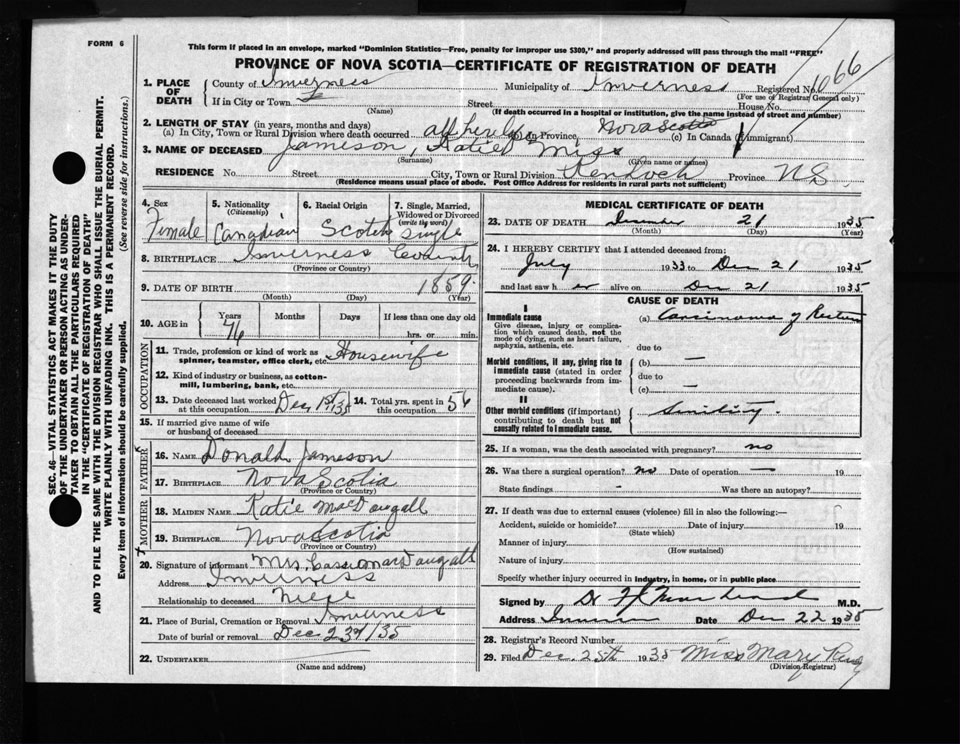 FORM 6
This form if placed in an envelope, marked "Dominion Statistics—Free, penalty for improper use $300," and properly addressed will pass through the mail "FREE"
PROVINCE OF NOVA SCOTIA—CERTIFICATE OF REGISTRATION OF DEATH
1. PLACE OF DEATH
County of Inverness Municipality of Inverness Registered No. 1066
(For use of Registrar General only)
If in City or Town Street House No.
(Name) (If death occurred in a hospital or institution, give the name instead of street and number)
2. LENGTH OF STAY (in years, months and days)
(a) In City, Town or Rural Division where death occurred all her life (b) In Province, Nova Scotia (c) In Canada (if immigrant)
3. NAME OF DECEASED Jameson, Katie Miss
(Surname) (Given name or names)
RESIDENCE No. Street City, Town or Rural Division Kenloch Province N.S.
(Residence means usual place of abode. Post Office Address for residents in rural parts not sufficient)
4. Sex Female
5. Nationality (Citizenship) Canadian
6. Racial Origin Scotch
7. Single, Married, Widowed or Divorced (write the word) Single
8. BIRTHPLACE Inverness County
(Province or Country)
9. DATE OF BIRTH 1859
(Month) (Day) (Year)
10. AGE in Years 76 Months Days If less than one day old hrs. or min.
OCCUPATION
11. Trade, profession or kind of work as spinner, teamster, office clerk, etc. Housewife
12. Kind of industry or business, as cotton-mill, lumbering, bank, etc.
13. Date deceased last worked at this occupation Dec 1st/35 14. Total yrs. spent in this occupation 56
15. If married give name of wife or husband of deceased
FATHER
16. NAME Donald Jameson
17. BIRTHPLACE Nova Scotia
(Province or Country)
MOTHER
18. MAIDEN NAME Katie MacDougall
19. BIRTHPLACE Nova Scotia
(Province or Country)
20. Signature of informant Mrs. Cassie MacDougall
Address Inverness
Relationship to deceased Niece
21. Place of Burial, Cremation or Removal Inverness
Date of burial or removal Dec 23rd/35
22. UNDERTAKER
(Name and address)
MEDICAL CERTIFICATE OF DEATH
23. DATE OF DEATH December 21 1935
(Month) (Day) (Year)
24. I HEREBY CERTIFY that I attended deceased from:
July 1933 to Dec 21 1935
and last saw h er alive on Dec 21 1935
CAUSE OF DEATH
I
Immediate cause (a) Carcinoma of Rectum
Give disease, injury or complication which caused death, not the mode of dying, such as heart failure, asphyxia, asthenia, etc.
due to
Morbid conditions, if any, giving rise to immediate cause (stated in order proceeding backwards from immediate cause).
(b) —
due to
(c) —
II
Other morbid conditions (if important) contributing to death but not causally related to immediate cause.
Senility.
25. If a woman, was the death associated with pregnancy? no
26. Was there a surgical operation? no Date of operation — 19
State findings - Was there an autopsy?
27. If death was due to external causes (violence) fill in also the following:—
Accident, suicide or homicide? Date of injury 19
(State which)
Manner of injury
(How sustained)
Nature of injury
Specify whether injury occurred in industry, in home, or in public place
Signed by M.D.
Address Date Dec 22 1935
28. Registrar's Record Number
29. Filed Dec 25th 1935 Miss Mary
(Division Registrar)
SEC. 46—VITAL STATISTICS ACT MAKES IT THE DUTY
OF THE UNDERTAKER OR PERSON ACTING AS UNDER-
TAKER TO OBTAIN ALL THE PARTICULARS REQUIRED
IN THE "CERTIFICATE OF REGISTRATION OF DEATH"
AND TO FILE THE SAME WITH THE DIVISION REGISTRAR WHO SHALL ISSUE THE BURIAL PERMIT.
WRITE PLAINLY WITH UNFADING INK. THIS IS A PERMANENT RECORD.
Every item of information should be carefully supplied. (See reverse side for instructions.)